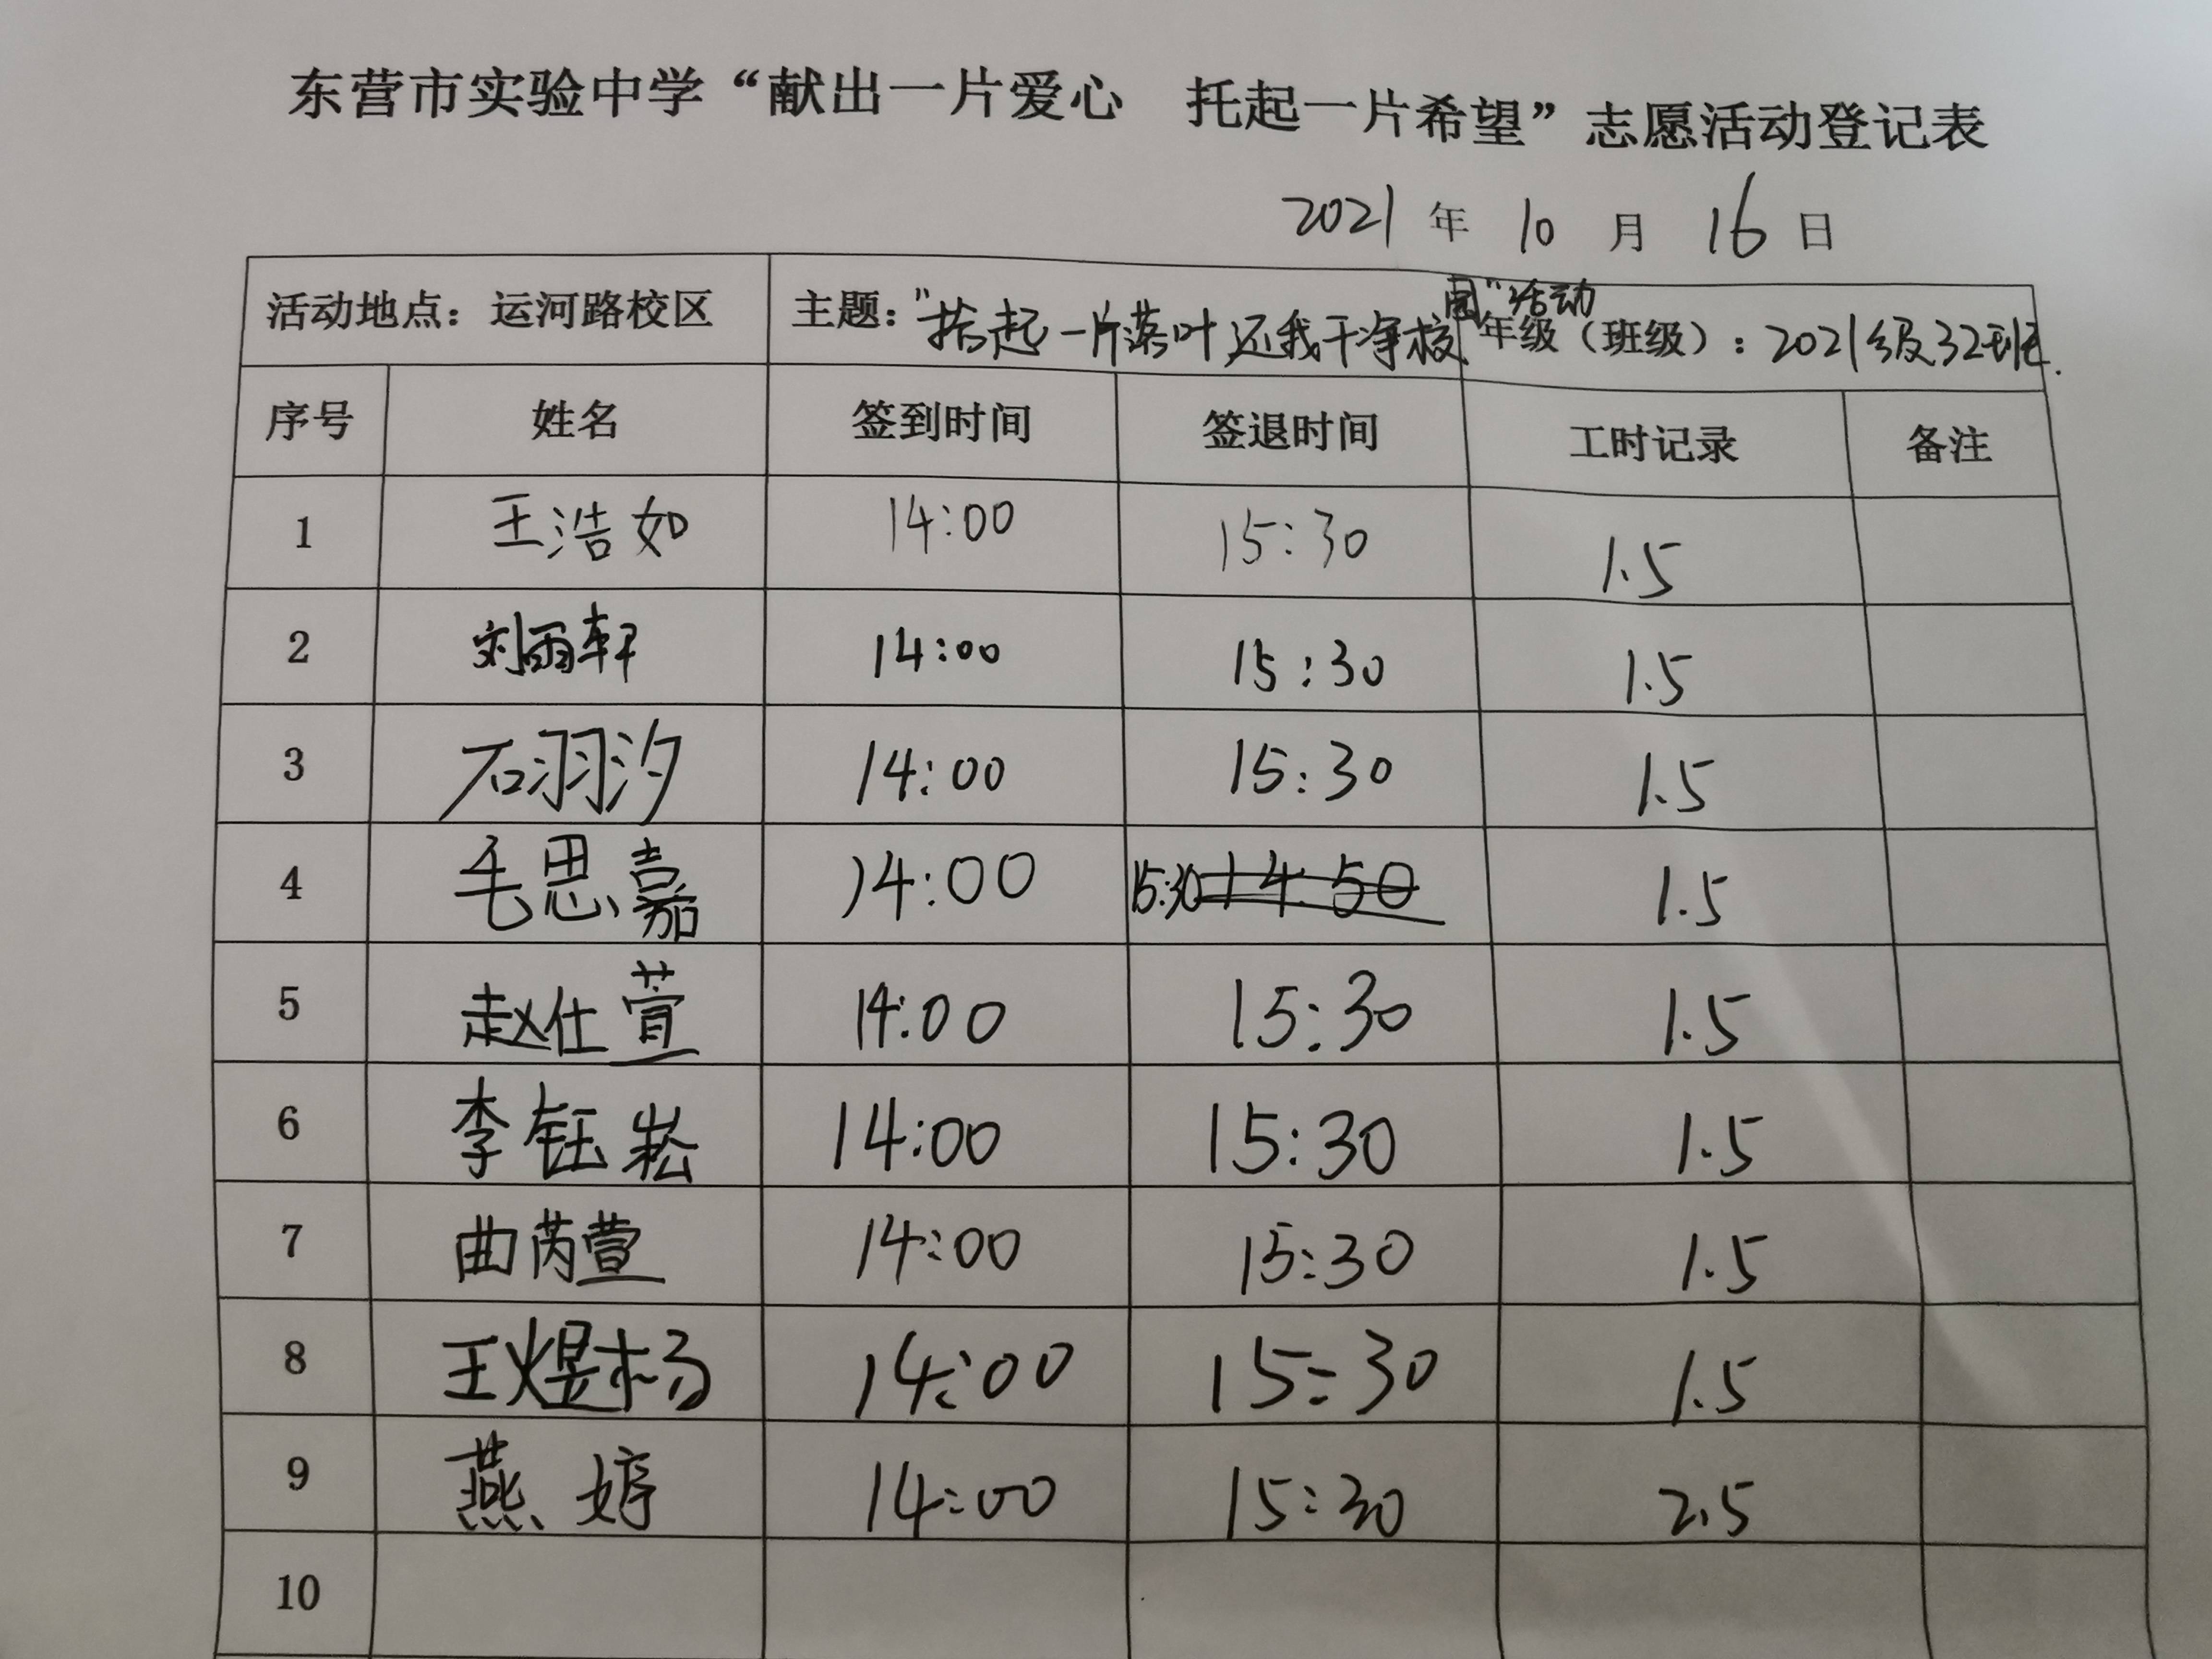 东营市实验中学“献出一片爱心 托起一片希望”志愿活动登记表
2021 年 10 月 16 日
活动地点：运河路校区 主题：“拾起一片落叶 还我干净校园”活动 年级（班级）：2021级32班.
序号 姓名 签到时间 签退时间 工时记录 备注
1 王浩如 14:00 15:30 1.5
2 刘雨轩 14:00 15:30 1.5
3 石羽汐 14:00 15:30 1.5
4 毛思嘉 14:00 15:30 14:50 1.5
5 赵仕萱 14:00 15:30 1.5
6 李钰崧 14:00 15:30 1.5
7 曲芮萱 14:00 15:30 1.5
8 王煜杨 14:00 15:30 1.5
9 燕婷 14:00 15:30 2.5
10